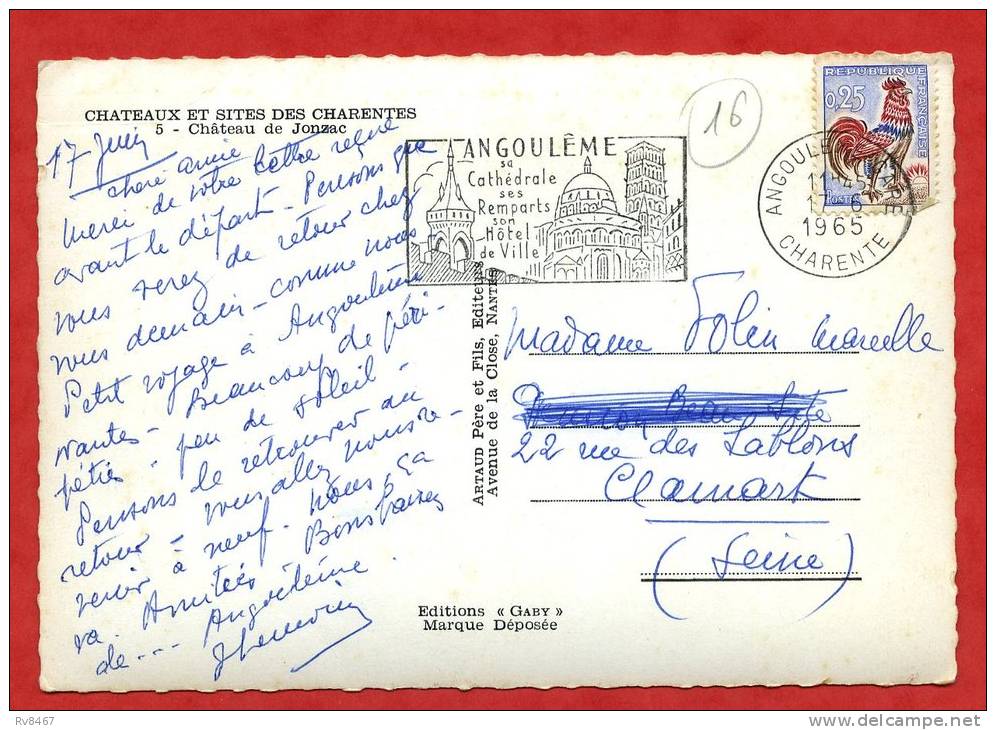 CHATEAUX ET SITES DES CHARENTES
5 - Château de Jonzac
17 Juin
chère amie
Merci de votre lettre reçue
avant le départ - Pensons que
vous serez de retour chez
vous demain - comme nous
Petit voyage à Angoulême
- Beaucoup de
- peu de soleil -
Pensons le retrouver au
retour - vous allez nous
venir à neuf. Nous ça
va. Amitiés Bons baisers
de... Angoulême
ANGOULÊME
sa
Cathédrale
ses
Remparts
son
Hôtel
de Ville
ANGOULE
11H45
1965
CHARENTE
16
REPUBLIQUE
FRANÇAISE
0,25
POSTES
ARTAUD Père et Fils, Editeurs
Avenue de la Close, NANTES
Madame Folin Marcelle
22 rue des Sablons
Clamart
(Seine)
Editions « GABY »
Marque Déposée
Rv8467